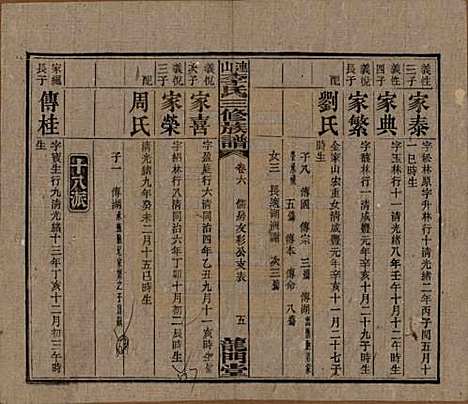 義性三子
家泰
字松林原字升林行十清光緒二年丙子閏五月十一巳時生
義性四子
家典
字玉林行十一清光緒八年壬午十二月十四酉時生
義悅長子
家繁
字馥林行一清咸豐元年辛亥十二月二十九午時生
配
劉氏
金家山宏東女清咸豐元年辛亥十一月二十七子時生
子八 傳國 傳宗 三殤 傳湖
五殤 傳本 傳命 八殤
女三 長適 次三殤
連山李氏三修族譜
卷六
儒房友彩公支表
五
龍門堂
義悅次子
家喜
字盈庭行一清同治四年乙丑九月十八時生
義悅三子
家榮
字紹林行一清同治六年丁卯十二月初二辰時生
配
周氏
清光緒九年癸未二月十五巳時生
子一 傳湖
十八派
家繩長子
傳桂
字寶生行九清光緒十三年丁亥十二月初三午時生